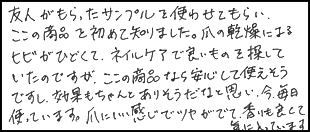 友人がもらったサンプルを使わせてもらい、
ここの商品を初めて知りました。爪の乾燥による
ヒビがひどくて、ネイルケアで良いものを探して
いたのですが、ここの商品なら安心して使えそう
ですし、効果もちゃんとありそうだなと思い、今、毎日
使っています。爪にいい感じでツヤがでて、香りも良くて
気に入っています